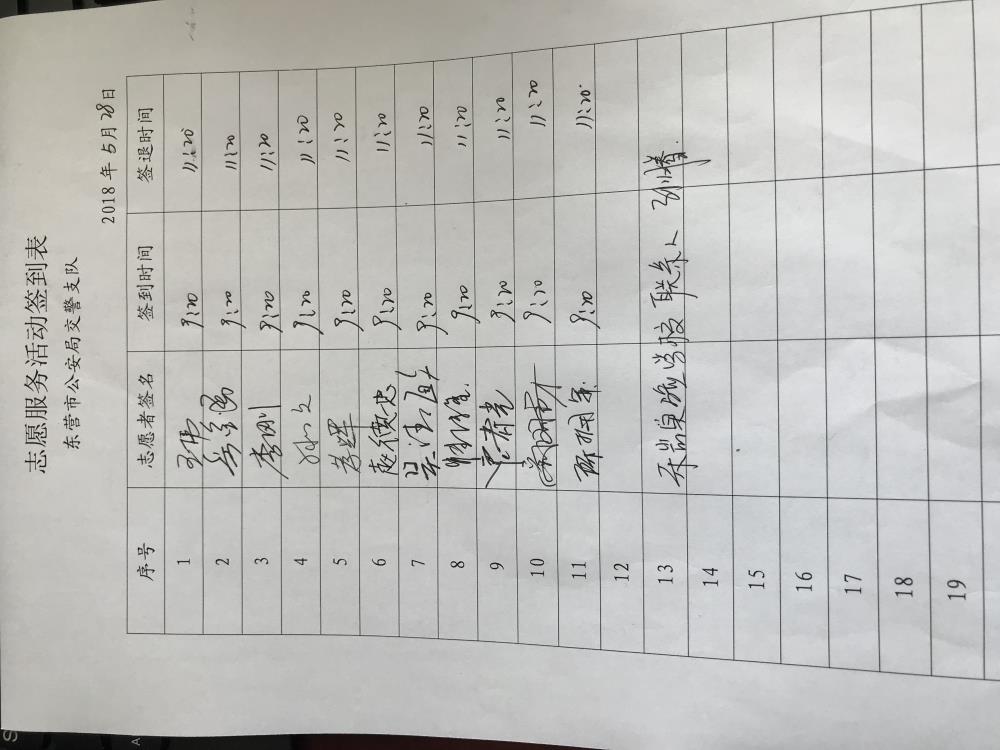 志愿服务活动签到表
东营市公安局交警支队
2018 年 5 月 28 日
序号 志愿者签名 签到时间 签退时间
1 王伟 9:20 11:20
2 9:20 11:20
3 李刚 9:20 11:20
4 9:20 11:20
5 9:20 11:20
6 赵德忠 9:20 11:20
7 9:20 11:20
8 9:20 11:20
9 9:20 11:20
10 9:20 11:20
11 9:20 11:20
12
13 学校 联系人
14
15
16
17
18
19